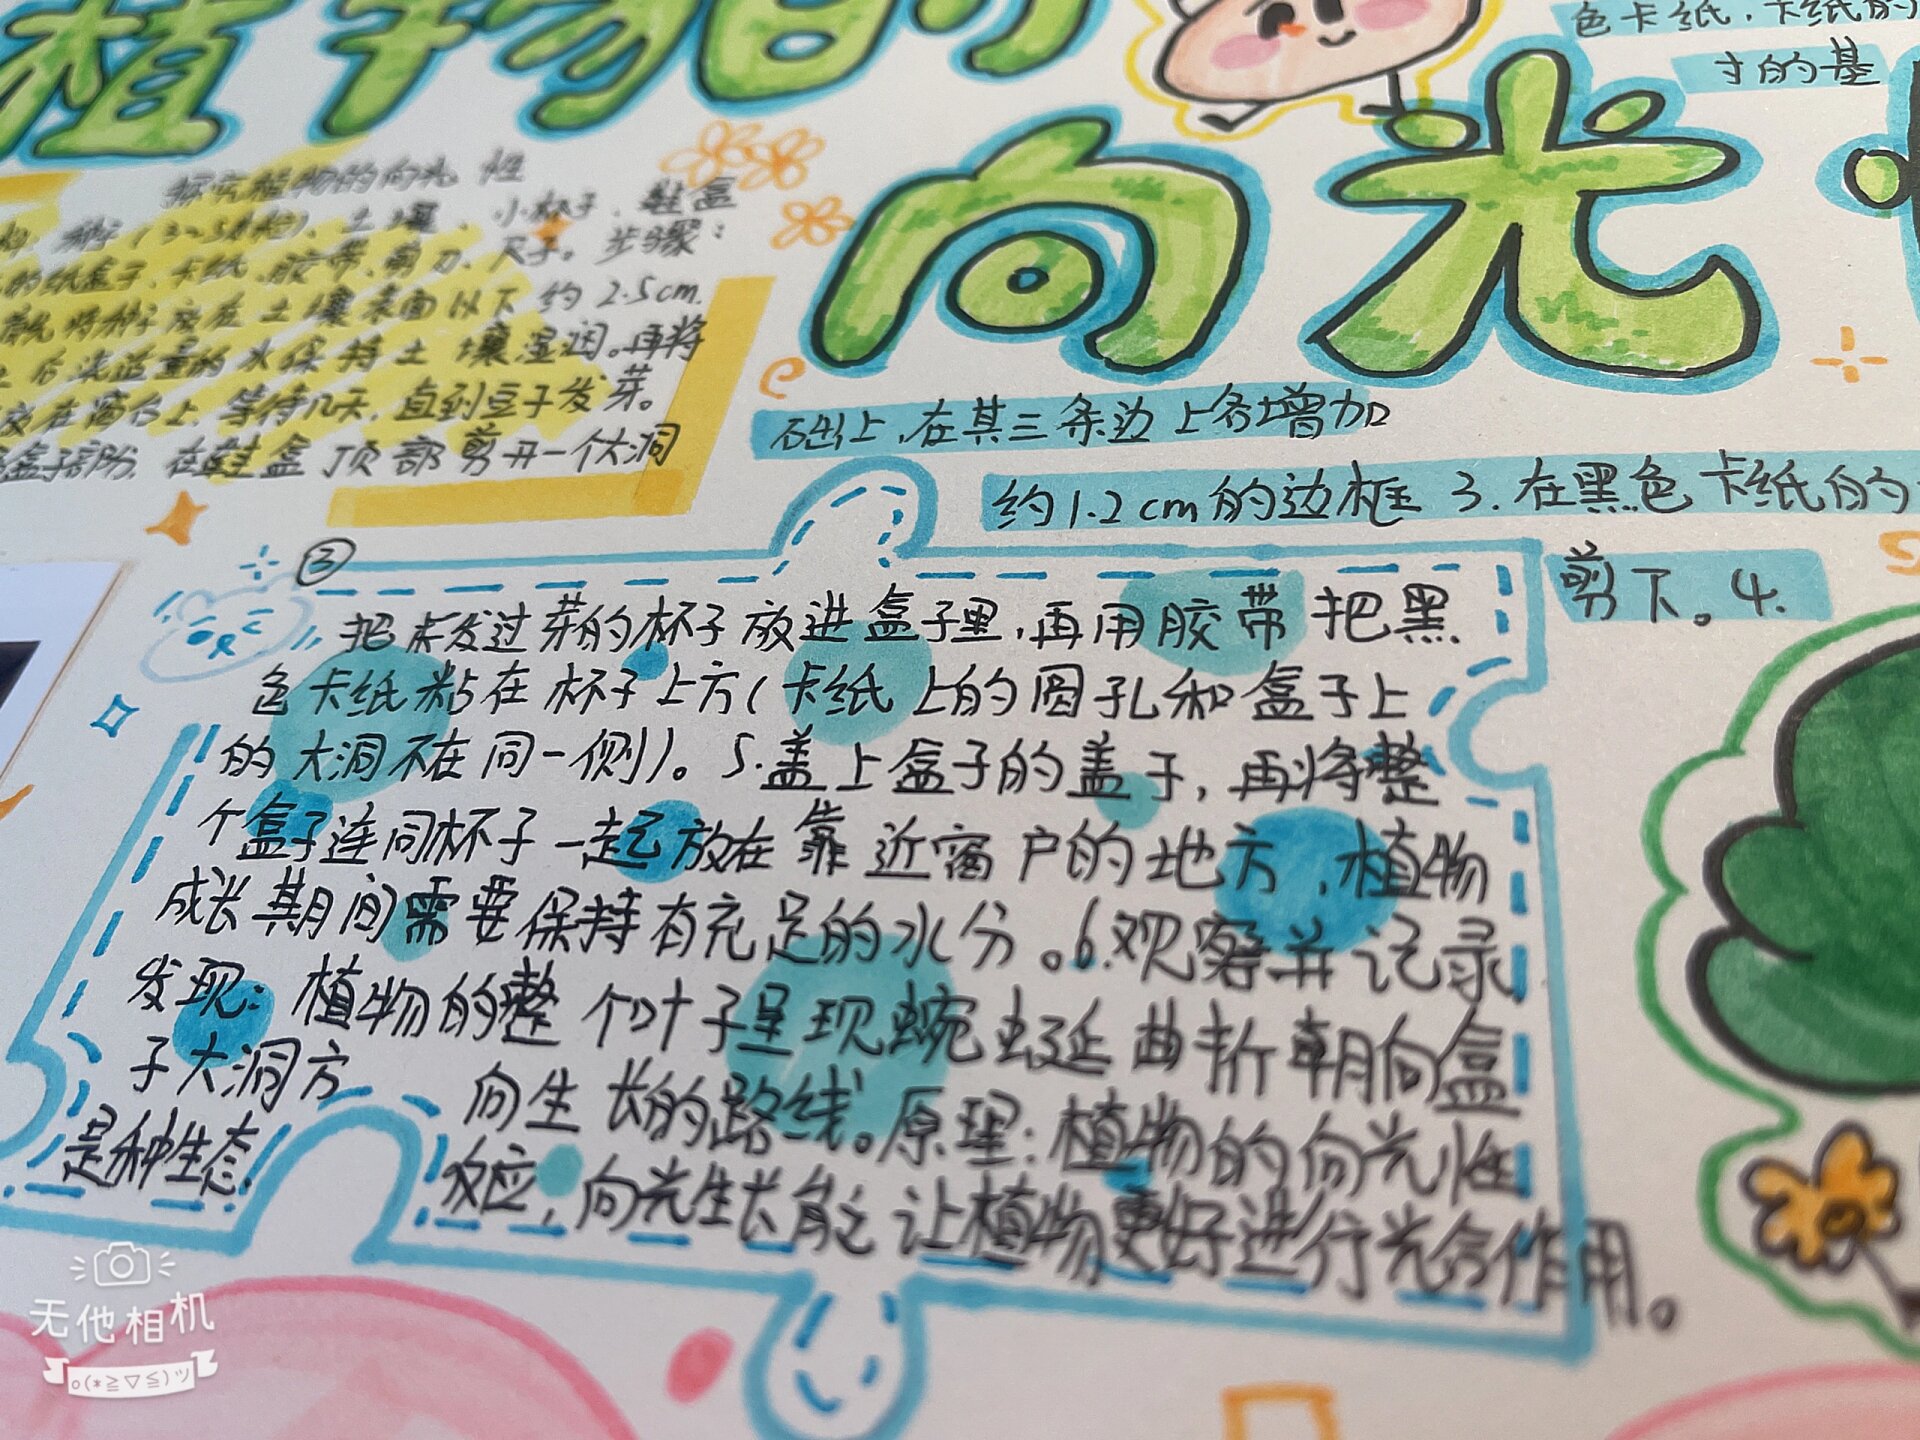 植物的
向光
色卡纸，卡纸的
寸的基
探究植物的向光性
种子(3~5颗粒)、土壤、小杯子、鞋盒
的纸盒子、卡纸、胶带、剪刀、尺子。步骤：
将种子放在土壤表面以下约2.5cm.
适量的水保持土壤湿润。再将
放在窗台上，等待几天，直到豆子发芽。
盒子部分，在鞋盒顶部剪开一个大洞
础上，在其三条边上各增加
约1.2cm的边框 3.在黑色卡纸的
剪下。4.
③
把未发过芽的杯子放进盒子里，再用胶带把黑
色卡纸粘在杯子上方(卡纸上的圆孔和盒子上
的大洞不在同一侧)。5.盖上盒子的盖子，再将整
个盒子连同杯子一起放在靠近窗户的地方，植物
成长期间需要保持有充足的水分。6.观察并记录
发现：植物的整个叶子呈现蜿蜒曲折朝向盒
子大洞方向生长的路线。原理：植物的向光性
是种生态效应，向光生长能让植物更好进行光合作用。
无他相机
o(*≧▽≦)ツ